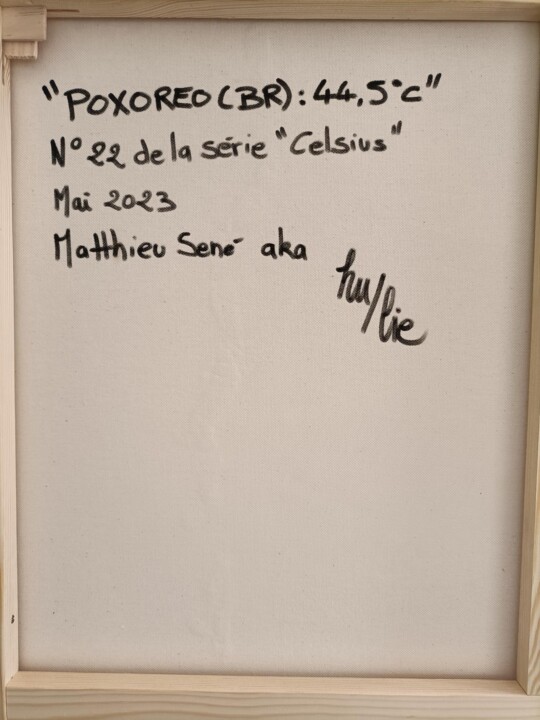 "POXOREO (BR) : 44,5°c"
N° 22 de la série "Celsius"
Mai 2023
Matthieu Sené aka
hu/lie